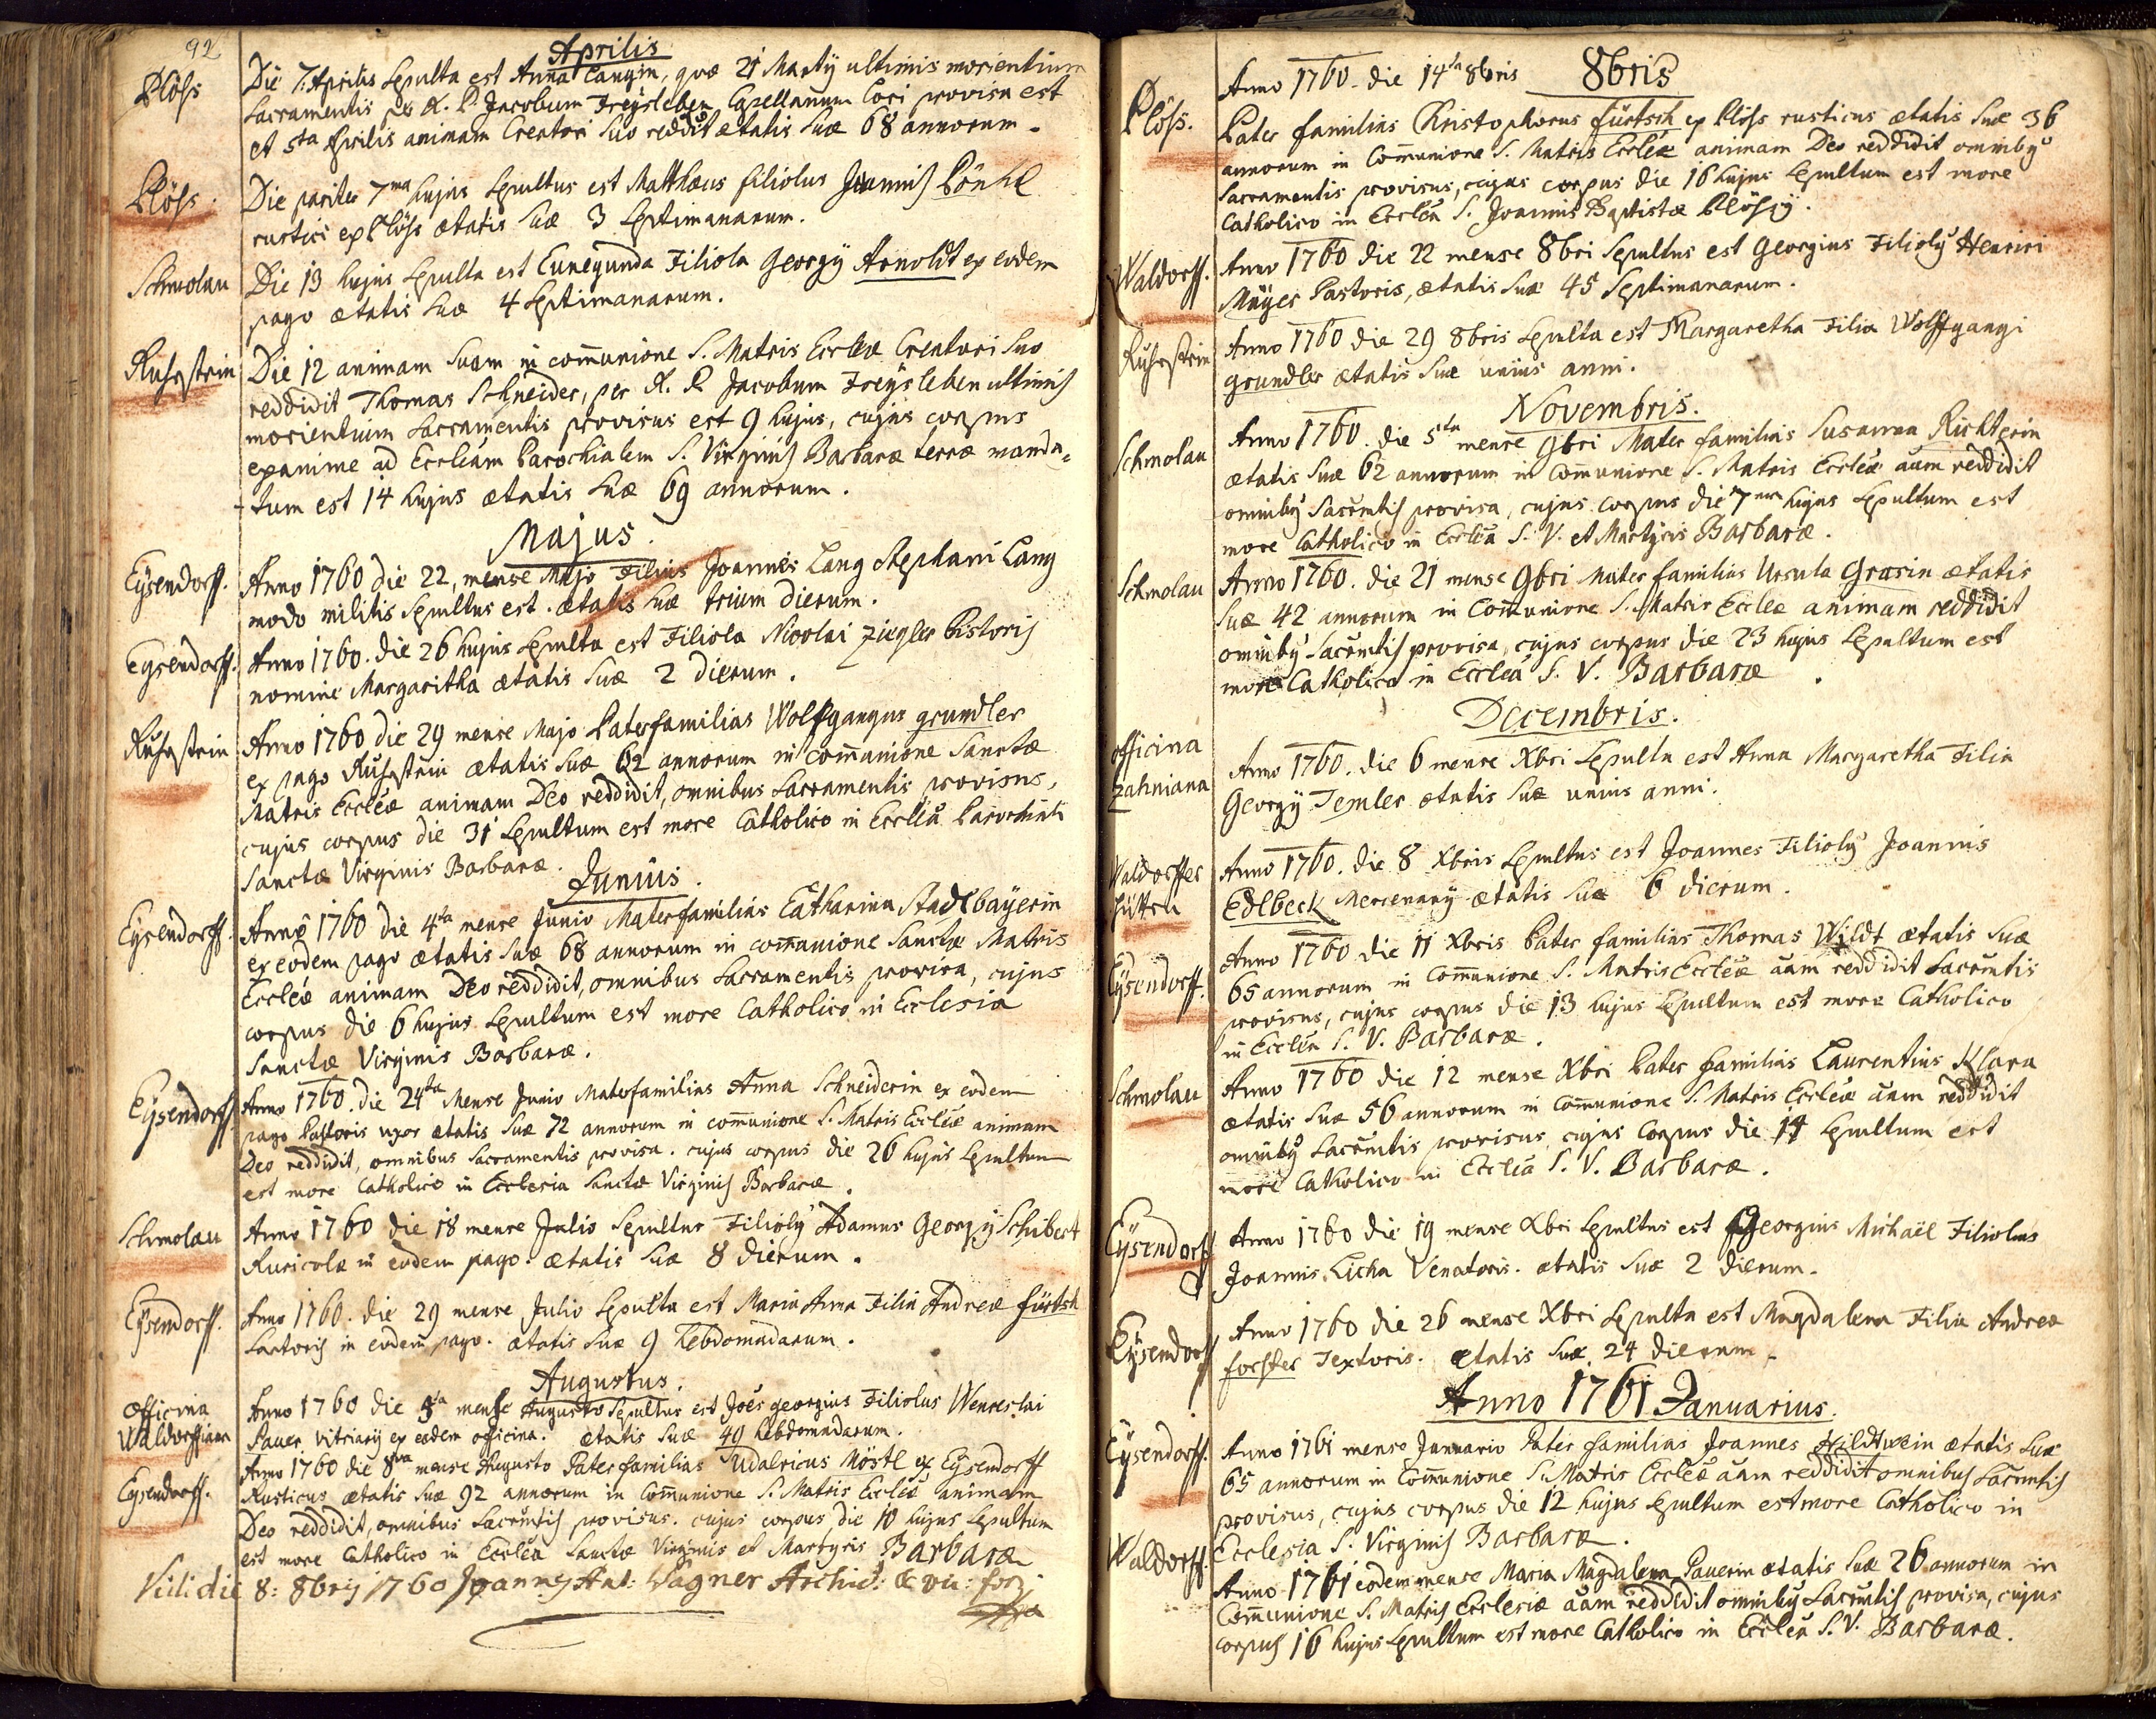 92
Aprilis
Plöss Die 7. Aprilis sepulta est Anna Langin, quæ 21 Martÿ ultimis morientium
Sacramentis per A. R. Jacobum Freÿsleben Capellanum loci provisa est
et 5ta Aprilis animam Creatori suo reddidit ætatis suæ 68 annorum.
Plöss. Die pariter 7ma hujus sepultus est Matthæus filiolus Joannis Pönhl
rustici ex Plöss ætatis suæ 3 septimanarum.
Schmolau Die 13 hujus sepulta est Cunegunda Filiola Georgÿ Arnoldt ex eodem
pago ætatis suæ 4 septimanarum.
Ruhrstein Die 12 animam suam in com̄unione S. Matris Eccleæ Creatori suo
reddidit Thomas Schneider, per A. R. Jacobum Freÿsleben ultimis
morientium Sacramentis provisus est 9 hujus, cujus corpus
exanime ad Eccleam Parochialem S. Virginis Barbaræ terræ manda-
-tum est 14 hujus ætatis suæ 69 annorum.
Majus.
Eÿsendorff. Anno 1760 die 22, mense Majo Filius Joannes Lang Stephani Lang
modo militis sepultus est. ætatis suæ trium dierum.
Eÿsendorff. Anno 1760. die 26 hujus sepulta est Filiola Nicolai Ziegler Pistoris
nomine Margaritha ætatis suæ 2 dierum.
Ruhrstein Anno 1760 die 29 mense Majo Paterfamilias Wolfgangus grundler
ex pago Ruhrstein ætatis suæ 62 annorum in com̄unione Sanctæ
Matris Eccleæ animam Deo reddidit, omnibus Sacramentis provisus,
cujus corpus die 31 sepultum est more Catholico in Ecclea Parochiali
Sanctæ Virginis Barbaræ.
Junius.
Eÿsendorff. Anno 1760 die 4ta mense Junio Materfamilias Catharina Stadlbaÿerin
ex eodem pago ætatis suæ 68 annorum in com̄unione Sanctæ Matris
Eccleæ animam Deo reddidit, omnibus Sacramentis provisa, cujus
corpus die 6 hujus sepultum est more Catholico in Ecclesia
Sanctæ Virginis Barbaræ.
Eÿsendorff Anno 1760. die 24ta Mense Junio Materfamilias Anna Schneiderin ex eodem
pago Pastoris uxor ætatis suæ 72 annorum in com̄unione S. Matris Eccleæ animam
Deo reddidit, omnibus Sacramentis provisa. cujus corpus die 26 hujus sepultum
est more Catholico in Ecclesia Sanctæ Virginis Barbaræ.
Schmolau Anno 1760 die 18 mense Julio sepultus Filiolÿ Adamus Georgÿ Schubert
Ruricolæ in eodem pago. ætatis suæ 8 dierum.
Eÿsendorff. Anno 1760. die 29 mense Julio sepulta est Maria Anna Filia Andreæ fürtsch
Sartoris in eodem pago. ætatis suæ 9 hebdomadarum.
Augustus.
Officina Anno 1760 die 5ta mense Augusto sepultus est Joēs georgius Filiolus Wenceslai
Waldorffiana Pauer, vitriarÿ ex eadem officina. ætatis suæ 40 hebdomadarum.
Eÿsendorff. Anno 1760 die 8va mense Augusto Paterfamilias Udalricus Möstl ex Eÿsendorff
Rusticus ætatis suæ 92 annorum in Com̄unione S. Matris Eccleæ animam
Deo reddidit, omnibus Sacr̄mtis provisus. cujus corpus die 10 hujus sepultum
est more Catholico in Ecclea Sanctæ Virginis et Martyris Barbaræ
Vidi die 8: 8bris 1760 Joannes Ant: Wagner Archid: & vic: for:
8bris
Plöss. Anno 1760. die 14ta 8bris
Pater familias Christophorus fürtsch ex Plöss rusticus ætatis suæ 36
annorum in Com̄unione S. Matris Eccleæ animam Deo reddidit ominibꝰ
Sacramentis provisus, cujus corpus die 16 hujus sepultum est more
Catholico in Ecclea S. Joannis Baptistæ Plössÿ.
Waldorff. Anno 1760 die 22 mense 8bri sepultus est Georgius Filiolꝰ Henrici
Maÿer Pastoris, ætatis suæ 45 septimanarum.
Ruhrstein Anno 1760 die 29 8bris sepulta est Margaretha Filia Wolffgangi
grundler ætatis suæ unius anni.
Novembris.
Schmolau Anno 1760. die 5ta mense 9bri Mater familias Susanna Richterin
ætatis suæ 62 annorum in Com̄unione S. Matris Eccleæ aam reddidit
ominibꝰ Sacr̄mtis provisa, cujus corpus die 7ma hujus sepultum est
more Catholico in Ecclea S. V. et Martyris Barbaræ.
Schmolau Anno 1760. die 21 mense 9bri Mater familias Ursula Grasin ætatis
suæ 42 annorum in Com̄unione S. Matris Eccleæ animam reddidit
ominibꝰ Sacr̄mtis provisa, cujus corpus die 23 hujus sepultum est
more Catholico in Ecclea S. V. Barbaræ.
Decembris.
officina Anno 1760. die 6 mense Xbri sepulta est Anna Margaretha Filia
Zahniana Georgÿ Temler ætatis suæ unius anni.
Waldorffer Anno 1760. die 8 Xbris sepultus est Joannes Filiolꝰ Joannis
hütten Edlbeck Mercenarÿ ætatis suæ 6 dierum.
Eÿsendorff. Anno 1760 die 11 Xbris Pater familias Thomas Wildt ætatis suæ
65 annorum in Com̄unione S. Matris Eccleæ aam reddidit Sacr̄mtis
provisus, cujus corpus die 13 hujus sepultum est more Catholico
in Ecclea S. V. Barbaræ.
Schmolau Anno 1760 die 12 mense Xbri Pater familias Laurentius Klara
ætatis suæ 56 annorum in Com̄unione S. Matris Eccleæ aam reddidit
ominibꝰ Sacr̄mtis provisus, cujus Corpus die 14 sepultum est
more Catholico in Ecclea S. V. Barbaræ.
Eÿsendorff Anno 1760 die 19 mense Xbri sepultus est Georgius Michaël Filiolus
Joannis Licha Venatoris. ætatis suæ 2 dierum.
Eÿsendorff Anno 1760 die 26 mense Xbri sepulta est Magdalena Filia Andreæ
forster Textoris. ætatis suæ 24 dierum.
Anno 1761 Januarius.
Eÿsendorff. Anno 1761 mense Januario Pater familias Joannes Hildtwein ætatis suæ
65 annorum in Com̄unione S. Matris Eccleæ aam reddidit omnibus Sacr̄mtis
provisus, cujus corpus die 12 hujus sepultum est more Catholico in
Ecclesia S. Virginis Barbaræ.
Waldorff. Anno 1761 eodem mense Maria Magdalena Pauerin ætatis suæ 26 annorum in
Com̄unione S. Matris Ecclesiæ aam reddidit ominibꝰ Sacr̄mtis provisa, cujus
corpus 16 hujus sepultum est more Catholico in Ecclea S. V. Barbaræ.